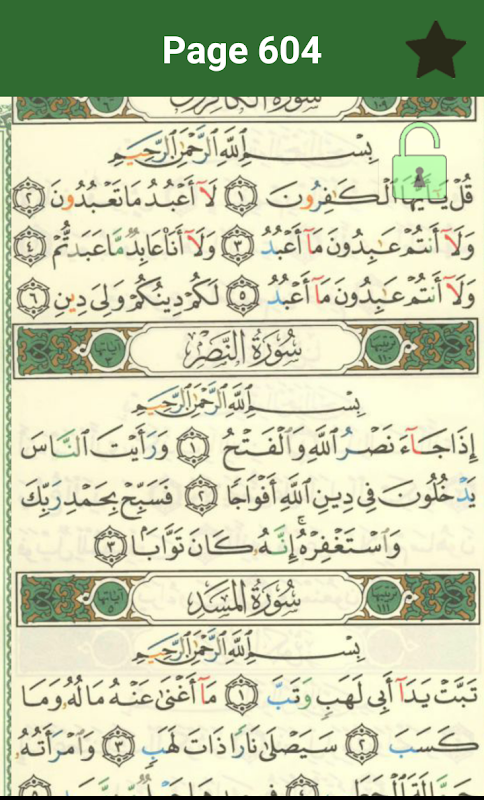 Page 604
سُورَةُ الكَافِرُونَ
بِسْمِ ٱللَّهِ ٱلرَّحْمَٰنِ ٱلرَّحِيمِ
قُلْ يَٰٓأَيُّهَا ٱلْكَٰفِرُونَ ١ لَآ أَعْبُدُ مَا تَعْبُدُونَ ٢
وَلَآ أَنتُمْ عَٰبِدُونَ مَآ أَعْبُدُ ٣ وَلَآ أَنَا۠ عَابِدٌ مَّا عَبَدتُّمْ ٤
وَلَآ أَنتُمْ عَٰبِدُونَ مَآ أَعْبُدُ ٥ لَكُمْ دِينُكُمْ وَلِىَ دِينِ ٦
ترتيبها ١١٠ سُورَةُ النَّصْرِ آياتها
بِسْمِ ٱللَّهِ ٱلرَّحْمَٰنِ ٱلرَّحِيمِ
إِذَا جَآءَ نَصْرُ ٱللَّهِ وَٱلْفَتْحُ ١ وَرَأَيْتَ ٱلنَّاسَ
يَدْخُلُونَ فِى دِينِ ٱللَّهِ أَفْوَاجًا ٢ فَسَبِّحْ بِحَمْدِ رَبِّكَ
وَٱسْتَغْفِرْهُ ۚ إِنَّهُۥ كَانَ تَوَّابًۢا ٣
ترتيبها ١١١ سُورَةُ المَسَدِ آياتها ٥
بِسْمِ ٱللَّهِ ٱلرَّحْمَٰنِ ٱلرَّحِيمِ
تَبَّتْ يَدَآ أَبِى لَهَبٍ وَتَبَّ ١ مَآ أَغْنَىٰ عَنْهُ مَالُهُۥ وَمَا
كَسَبَ ٢ سَيَصْلَىٰ نَارًا ذَاتَ لَهَبٍ ٣ وَٱمْرَأَتُهُۥ